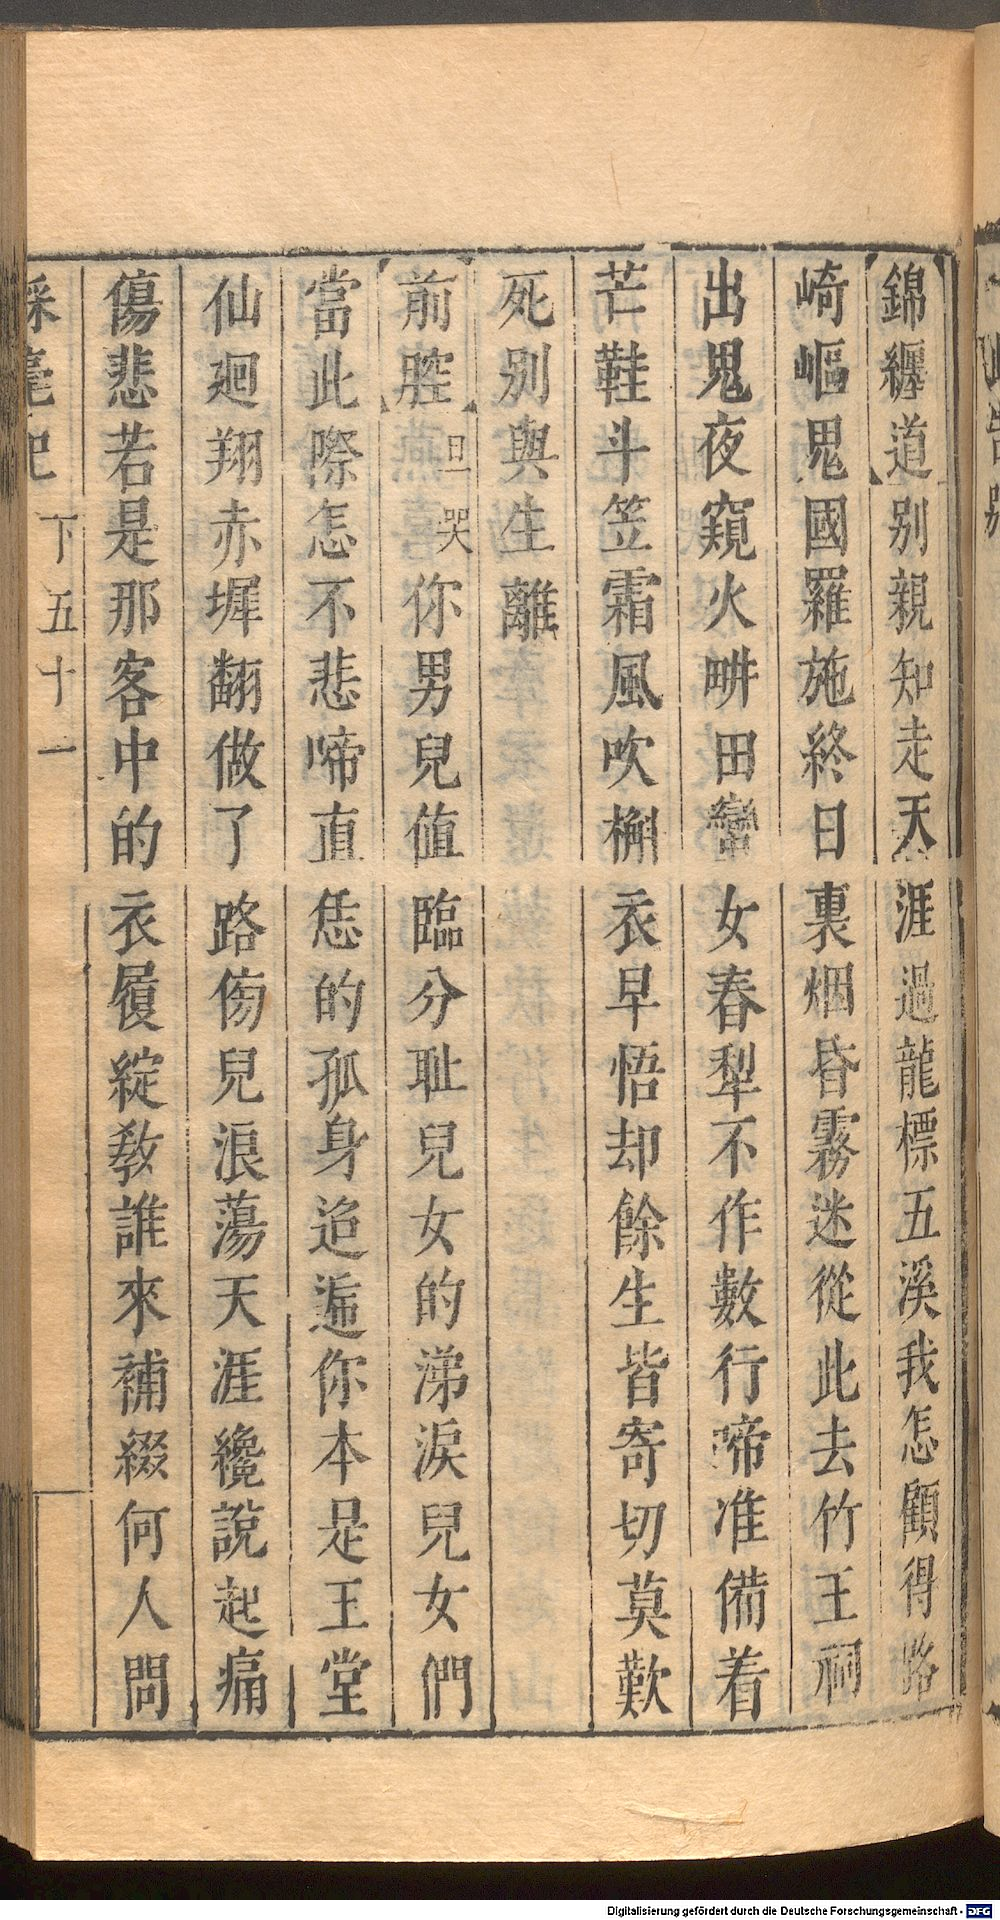 錦纏道別親知走天涯過龍標五溪我怎顧得路
崎嶇鬼國羅施終日裏烟昏霧迷從此去竹王祠
出鬼夜窺火畊田蠻女春犁不作數行啼准備着
芒鞋斗笠霜風吹槲衣早悟却餘生皆寄切莫歎
死別與生離
前腔旦哭你男兒值臨分耻兒女的涕淚兒女們
當此際怎不悲啼直恁的孤身迨遞你本是王堂
仙廻翔赤墀翻做了路傍兒浪蕩天涯纔說起痛
傷悲若是那客中的衣履綻教誰來補綴何人問
綵毫記
下五十一
Digitalisierung gefördert durch die Deutsche Forschungsgemeinschaft - DFG